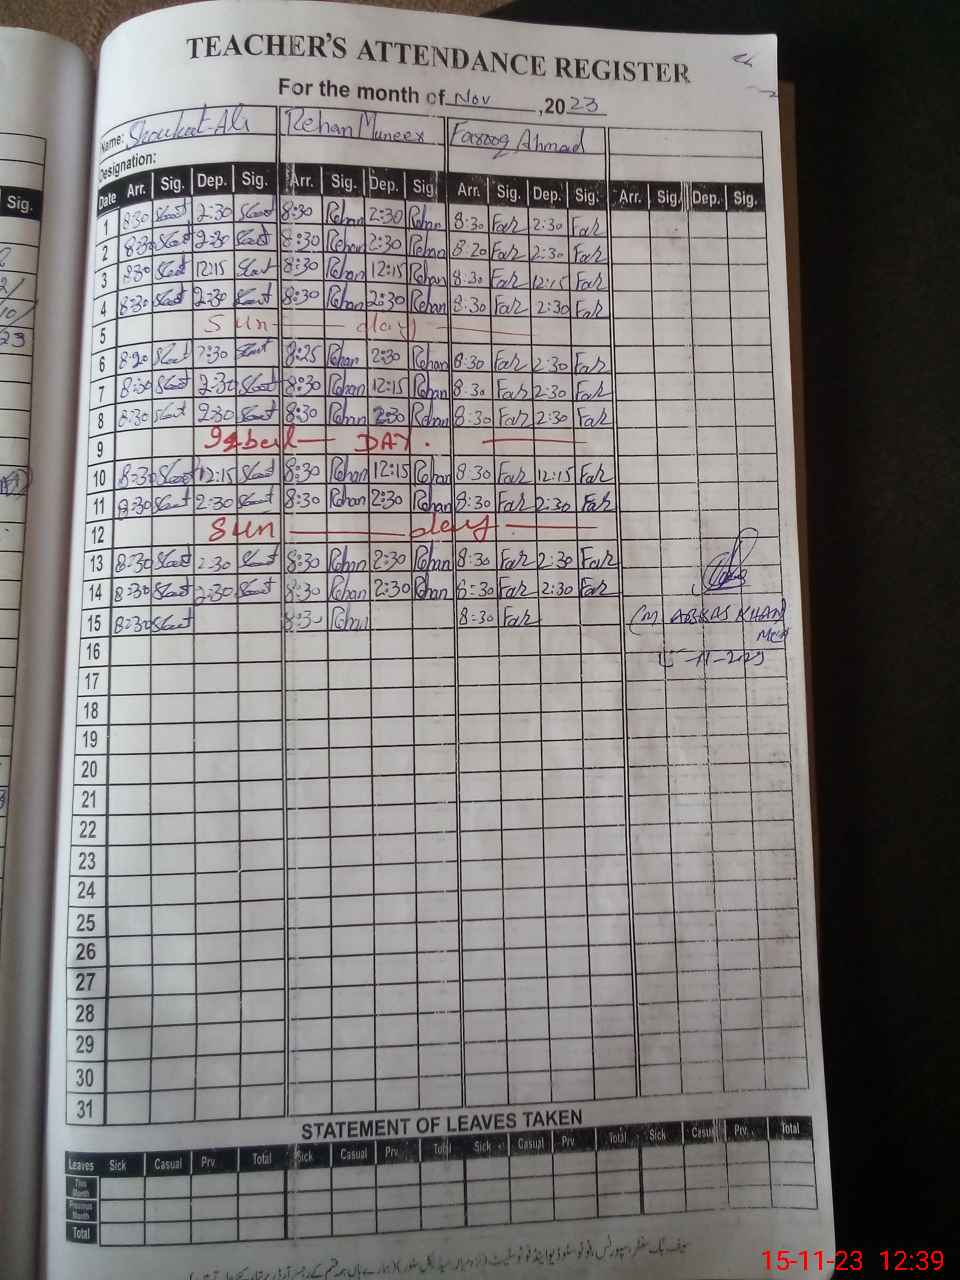 TEACHER'S ATTENDANCE REGISTER
For the month of Nov, 2023
Name: Shoukat-Ali Rehan Muneer Farooq Ahmad
Designation:
Date Arr. Sig. Dep. Sig. Arr. Sig. Dep. Sig. Arr. Sig. Dep. Sig. Arr. Sig. Dep. Sig.
1 8:30 2:30 8:30 Rehan 2:30 Rehan 8:30 Far 2:30 Far
2 8:30 2:30 8:30 Rehan 2:30 Rehan 8:20 Far 2:30 Far
3 8:30 12:15 8:30 Rehan 12:15 Rehan 8:30 Far 12:15 Far
4 8:30 2:30 8:30 Rehan 2:30 Rehan 8:30 Far 2:30 Far
5 Sun day
6 8:20 2:30 8:25 Rehan 2:30 Rehan 8:30 Far 2:30 Far
7 8:30 2:30 8:30 Rehan 12:15 Rehan 8:30 Far 2:30 Far
8 8:30 2:30 8:30 Rehan 2:30 Rehan 8:30 Far 2:30 Far
9 Iqbal DAY.
10 8:30 12:15 8:30 Rehan 12:15 Rehan 8:30 Far 12:15 Far
11 8:30 2:30 8:30 Rehan 2:30 Rehan 8:30 Far 2:30 Far
12 Sun day
13 8:30 2:30 8:30 Rehan 2:30 Rehan 8:30 Far 2:30 Far
14 8:30 2:30 8:30 Rehan 2:30 Rehan 8:30 Far 2:30 Far
15 8:30 8:30 Rehan 8:30 Far (M ABBAS KHAN
16 15-11-2023
17
18
19
20
21
22
23
24
25
26
27
28
29
30
31
STATEMENT OF LEAVES TAKEN
Leaves Sick Casual Prv. Total Sick Casual Prv. Total Sick Casual Prv. Total Sick Casual Prv. Total
This Month
Previous Month
Total
Sig.
23
15-11-23 12:39